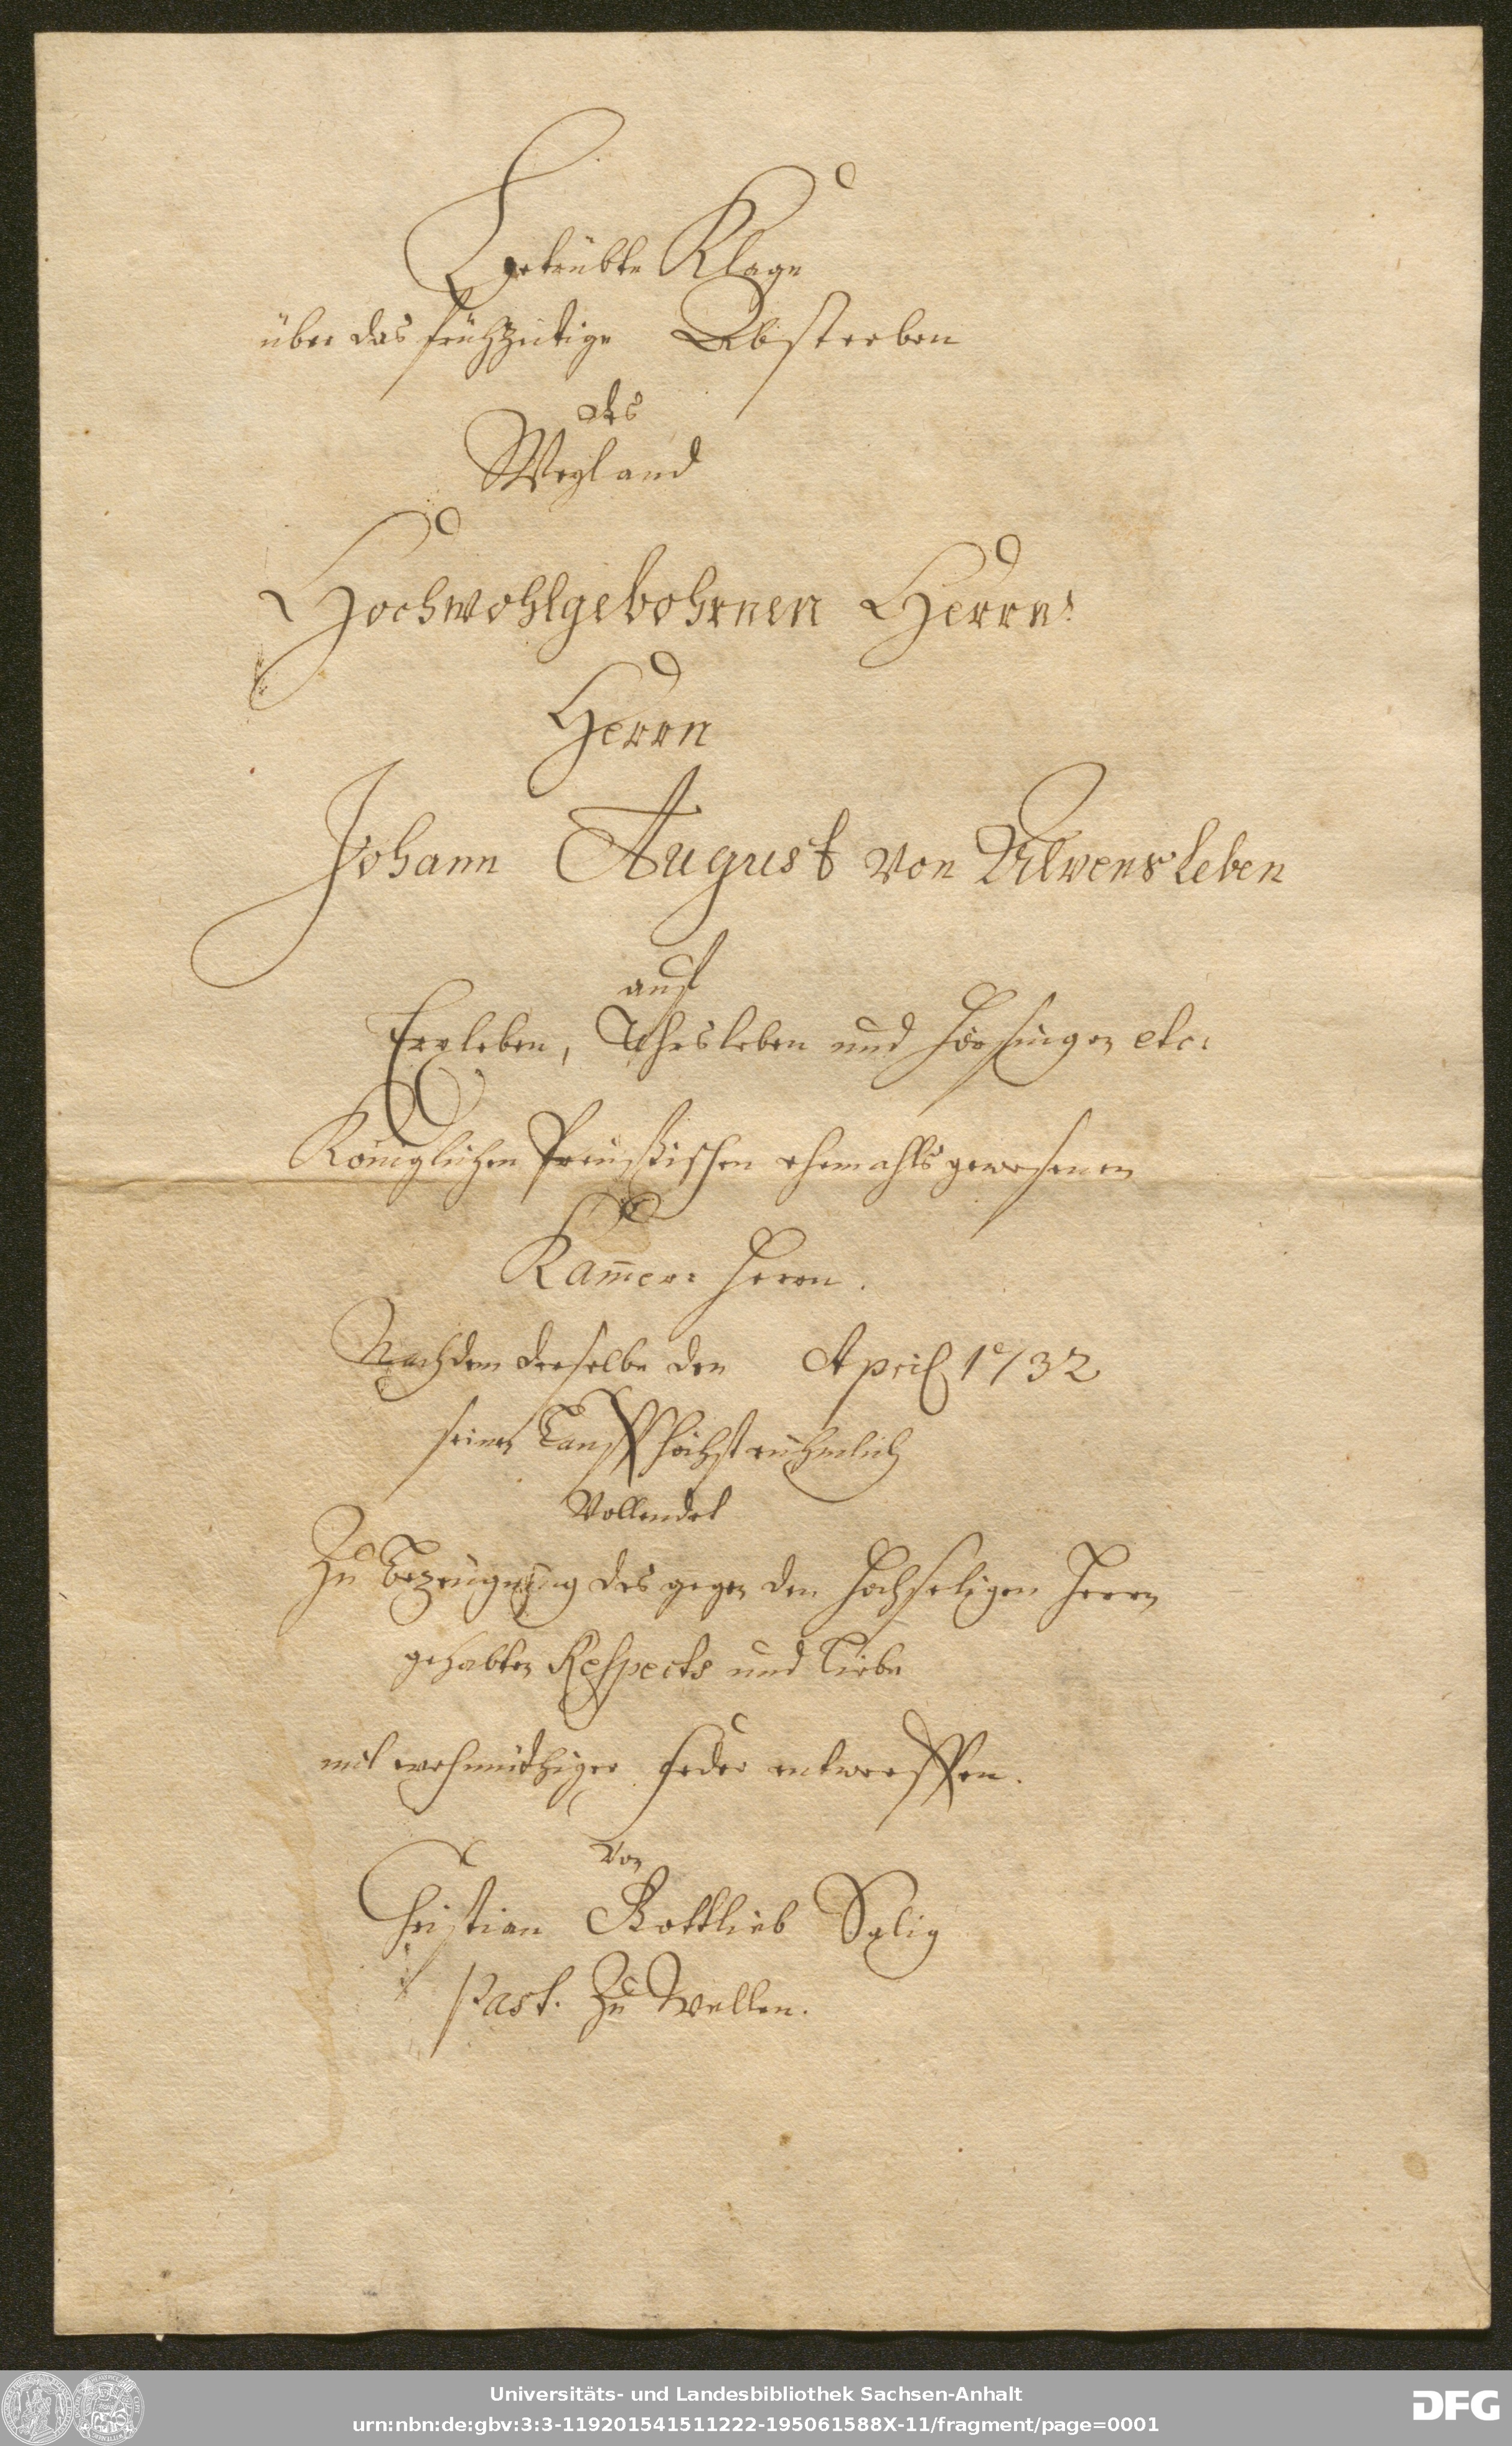 Betrübte Klage
über das frühzeitige Absterben
des
Weyland
Hochwohlgebohrnen Herrn!
Herrn
Johann August von Alvensleben
auf
Erxleben, Uhrsleben und Hörsingen etc:
Königlichen Preußischen ehemahls gewesenen
Kam̅er: Herrn.
Nachdem derselbe den April 1732
seinen Lauff höchstrühmlich
Vollendet
Zu Bezeugung des gegen den Hochseligen Herrn
gehabten Respects und Liebe
mit wehmüthiger Feder entworffen.
Von
Christian Gottlieb Salig
Past. Zu Wellen.
Universitäts- und Landesbibliothek Sachsen-Anhalt
urn:nbn:de:gbv:3:3-119201541511222-195061588X-11/fragment/page=0001
DFG